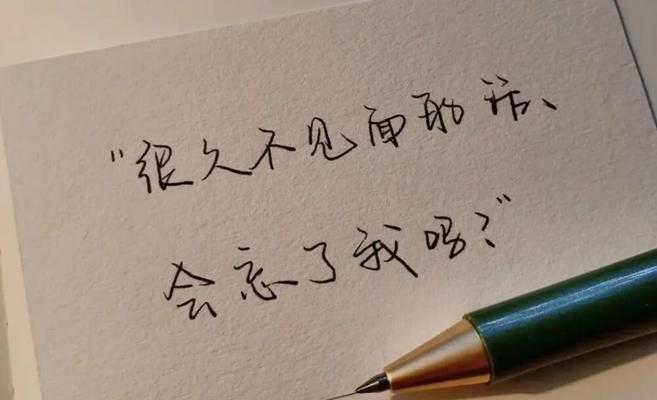 "很久不见面的话、
会忘了我吗?"